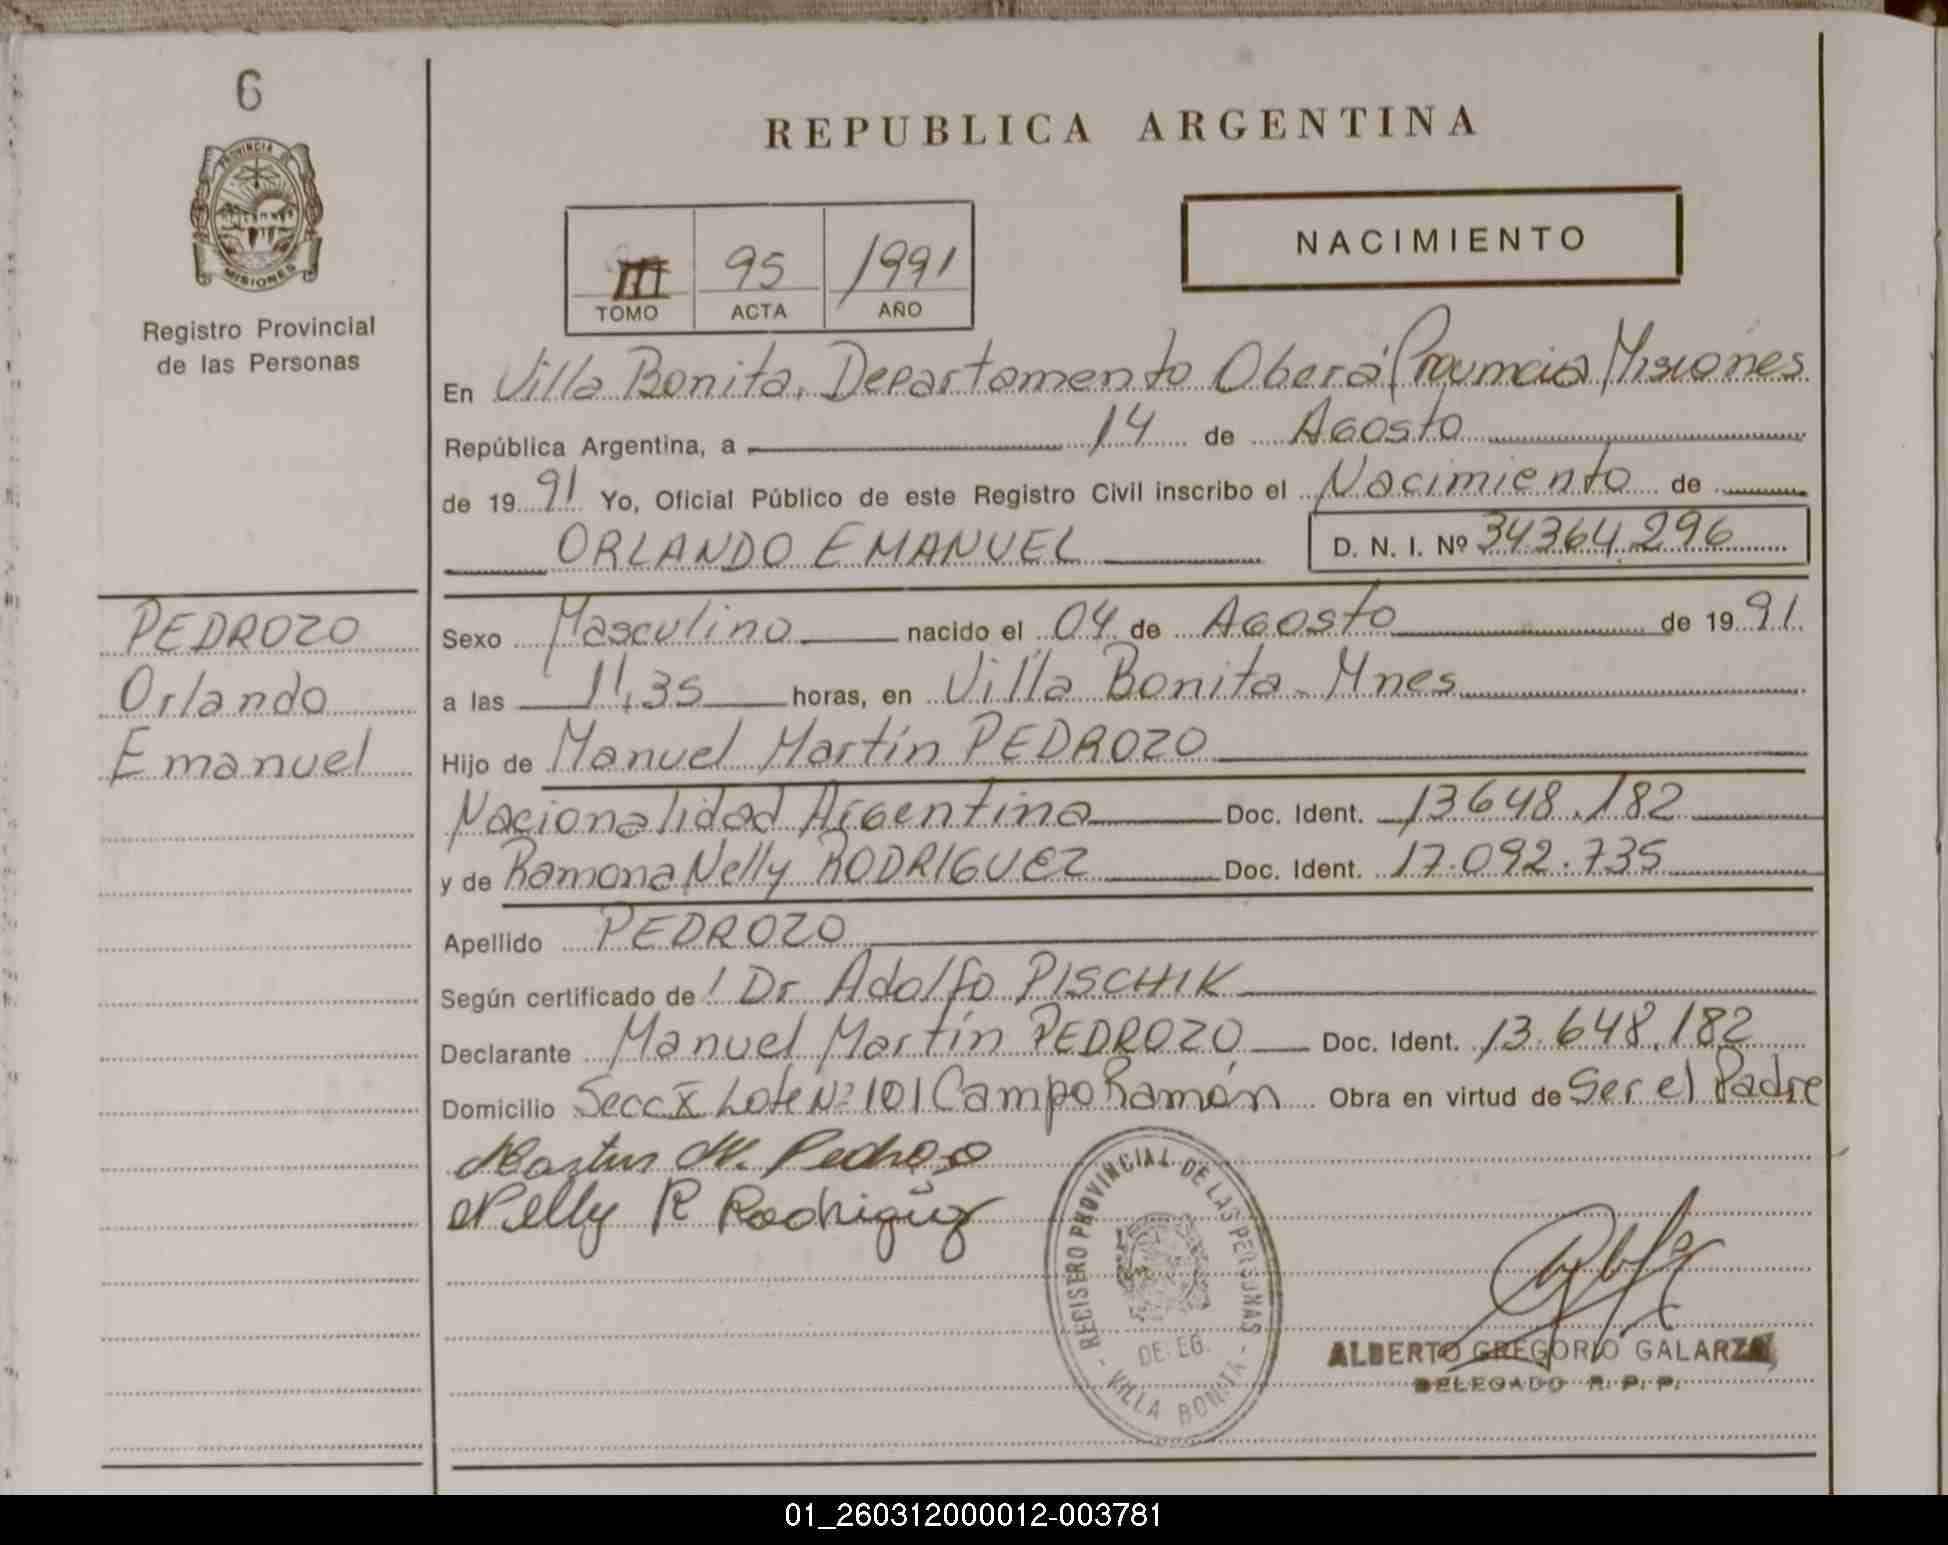 6
PROVINCIA DE
MISIONES
Registro Provincial
de las Personas
REPUBLICA ARGENTINA
III 95 1991
TOMO ACTA AÑO
NACIMIENTO
En Villa Bonita, Departamento Oberá Provincia Misiones
República Argentina, a 14 de Agosto
de 19 91 Yo, Oficial Público de este Registro Civil inscribo el Nacimiento de
ORLANDO EMANUEL D. N. I. Nº 34364.296
PEDROZO
Orlando
Emanuel
Sexo Masculino nacido el 04 de Agosto de 19 91
a las 11,35 horas, en Villa Bonita - Mnes
Hijo de Manuel Martín PEDROZO
Nacionalidad Argentina Doc. Ident. 13648.182
y de Ramona Nelly RODRIGUEZ Doc. Ident. 17.092.735
Apellido PEDROZO
Según certificado de Dr Adolfo PISCHIK
Declarante Manuel Martín PEDROZO Doc. Ident. 13.648.182
Domicilio Secc X Lote Nº 101 Campo Ramón Obra en virtud de Ser el Padre
Martin M. Pedrozo
Nelly R Rodriguez
REGISTRO PROVINCIAL DE LAS PERSONAS
DELEG.
- VILLA BONITA -
ALBERTO GREGORIO GALARZA
DELEGADO R. P. P.
01_260312000012-003781